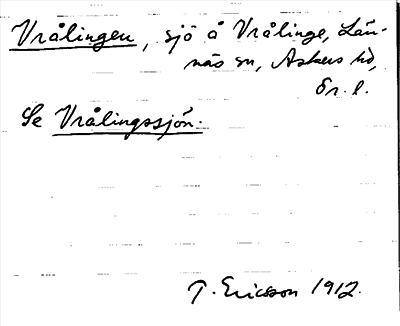 Vrålingen, sjö å Vrålinge, Län-
näs sn, Askers hd,
Ör. l.
Se Vrålingssjön.
T. Ericsson 1912.